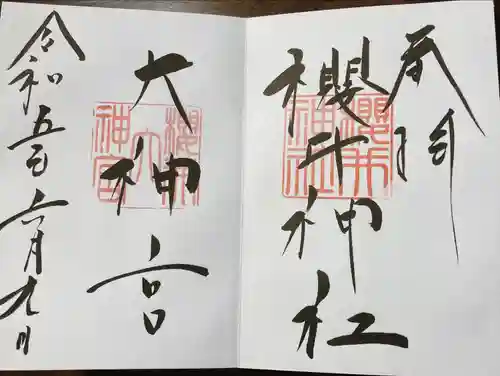 奉拝
櫻井神社
櫻井
神社
大神宮
令和五年六月九日